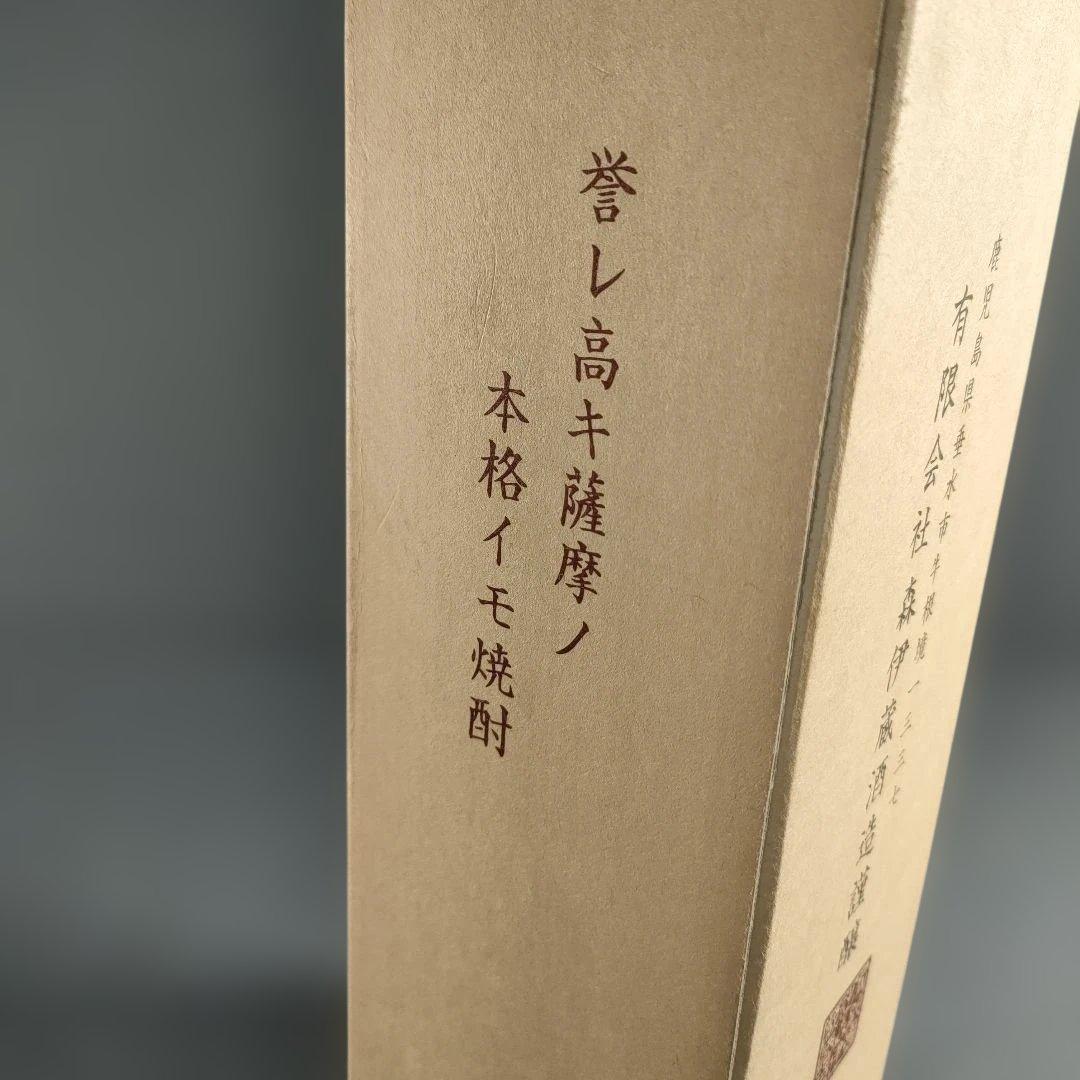 誉レ高キ薩摩ノ
本格イモ焼酎
鹿児島県垂水市牛根境一三三七
有限会社森伊蔵酒造謹醸